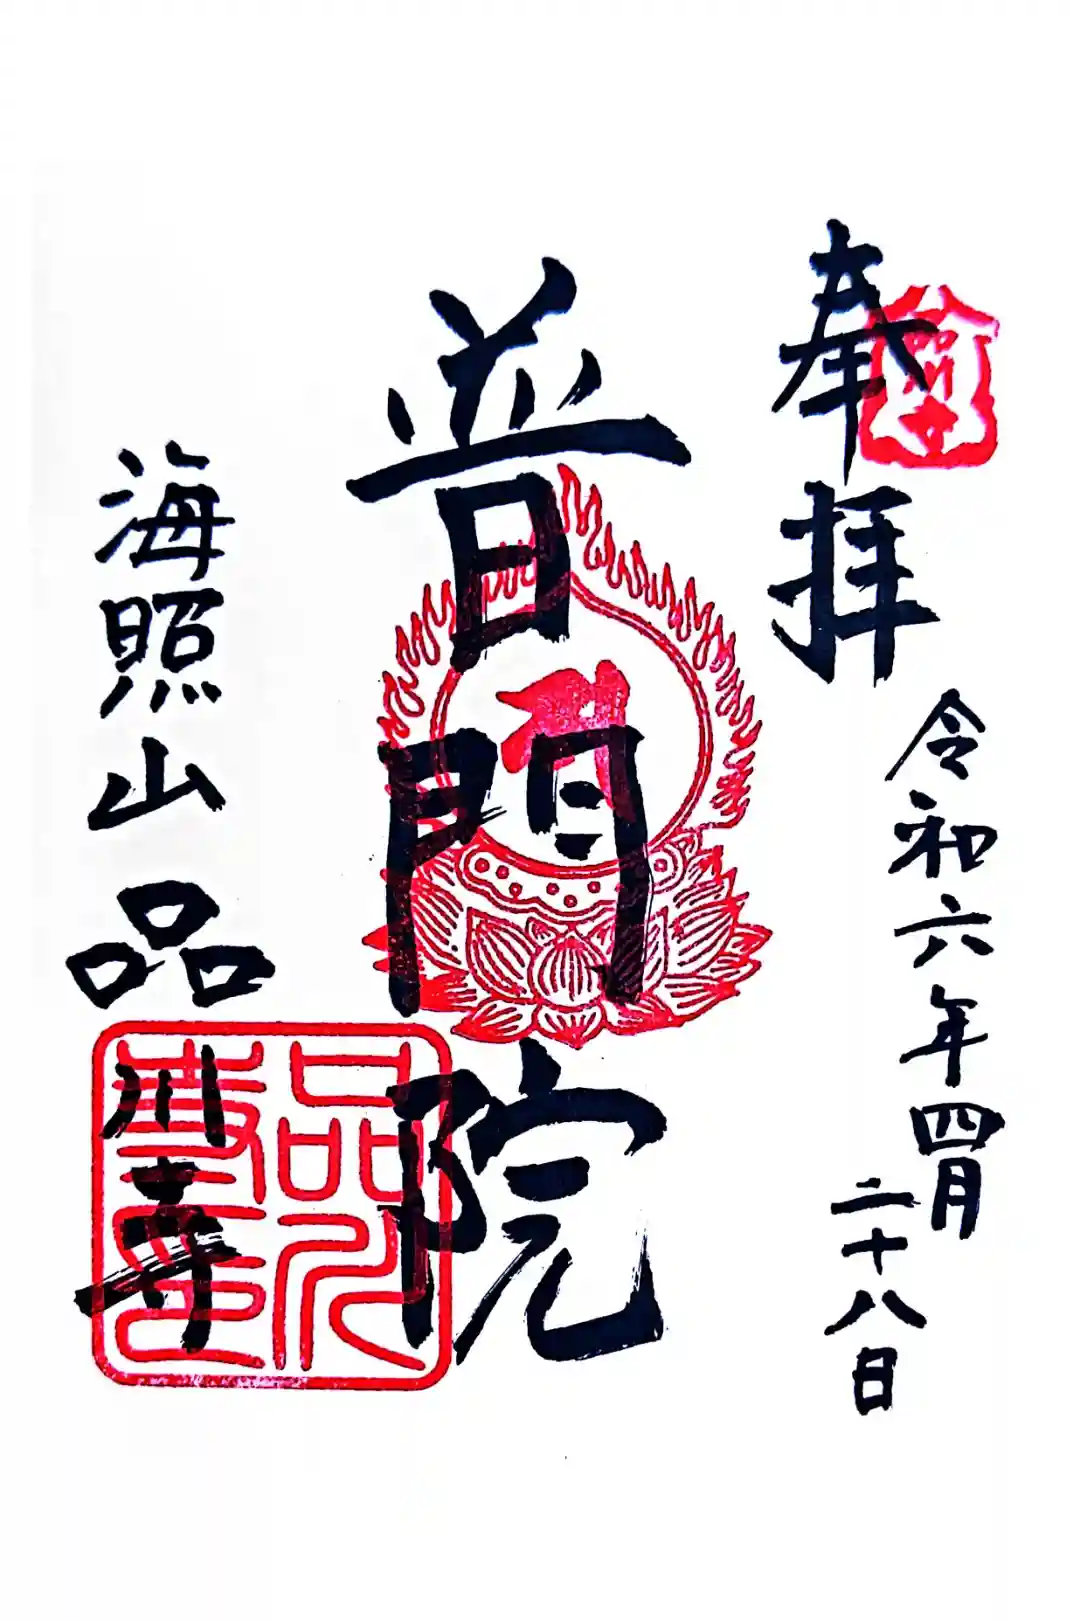 奉拝
令和六年四月
二十八日
普門院
海照山品川寺